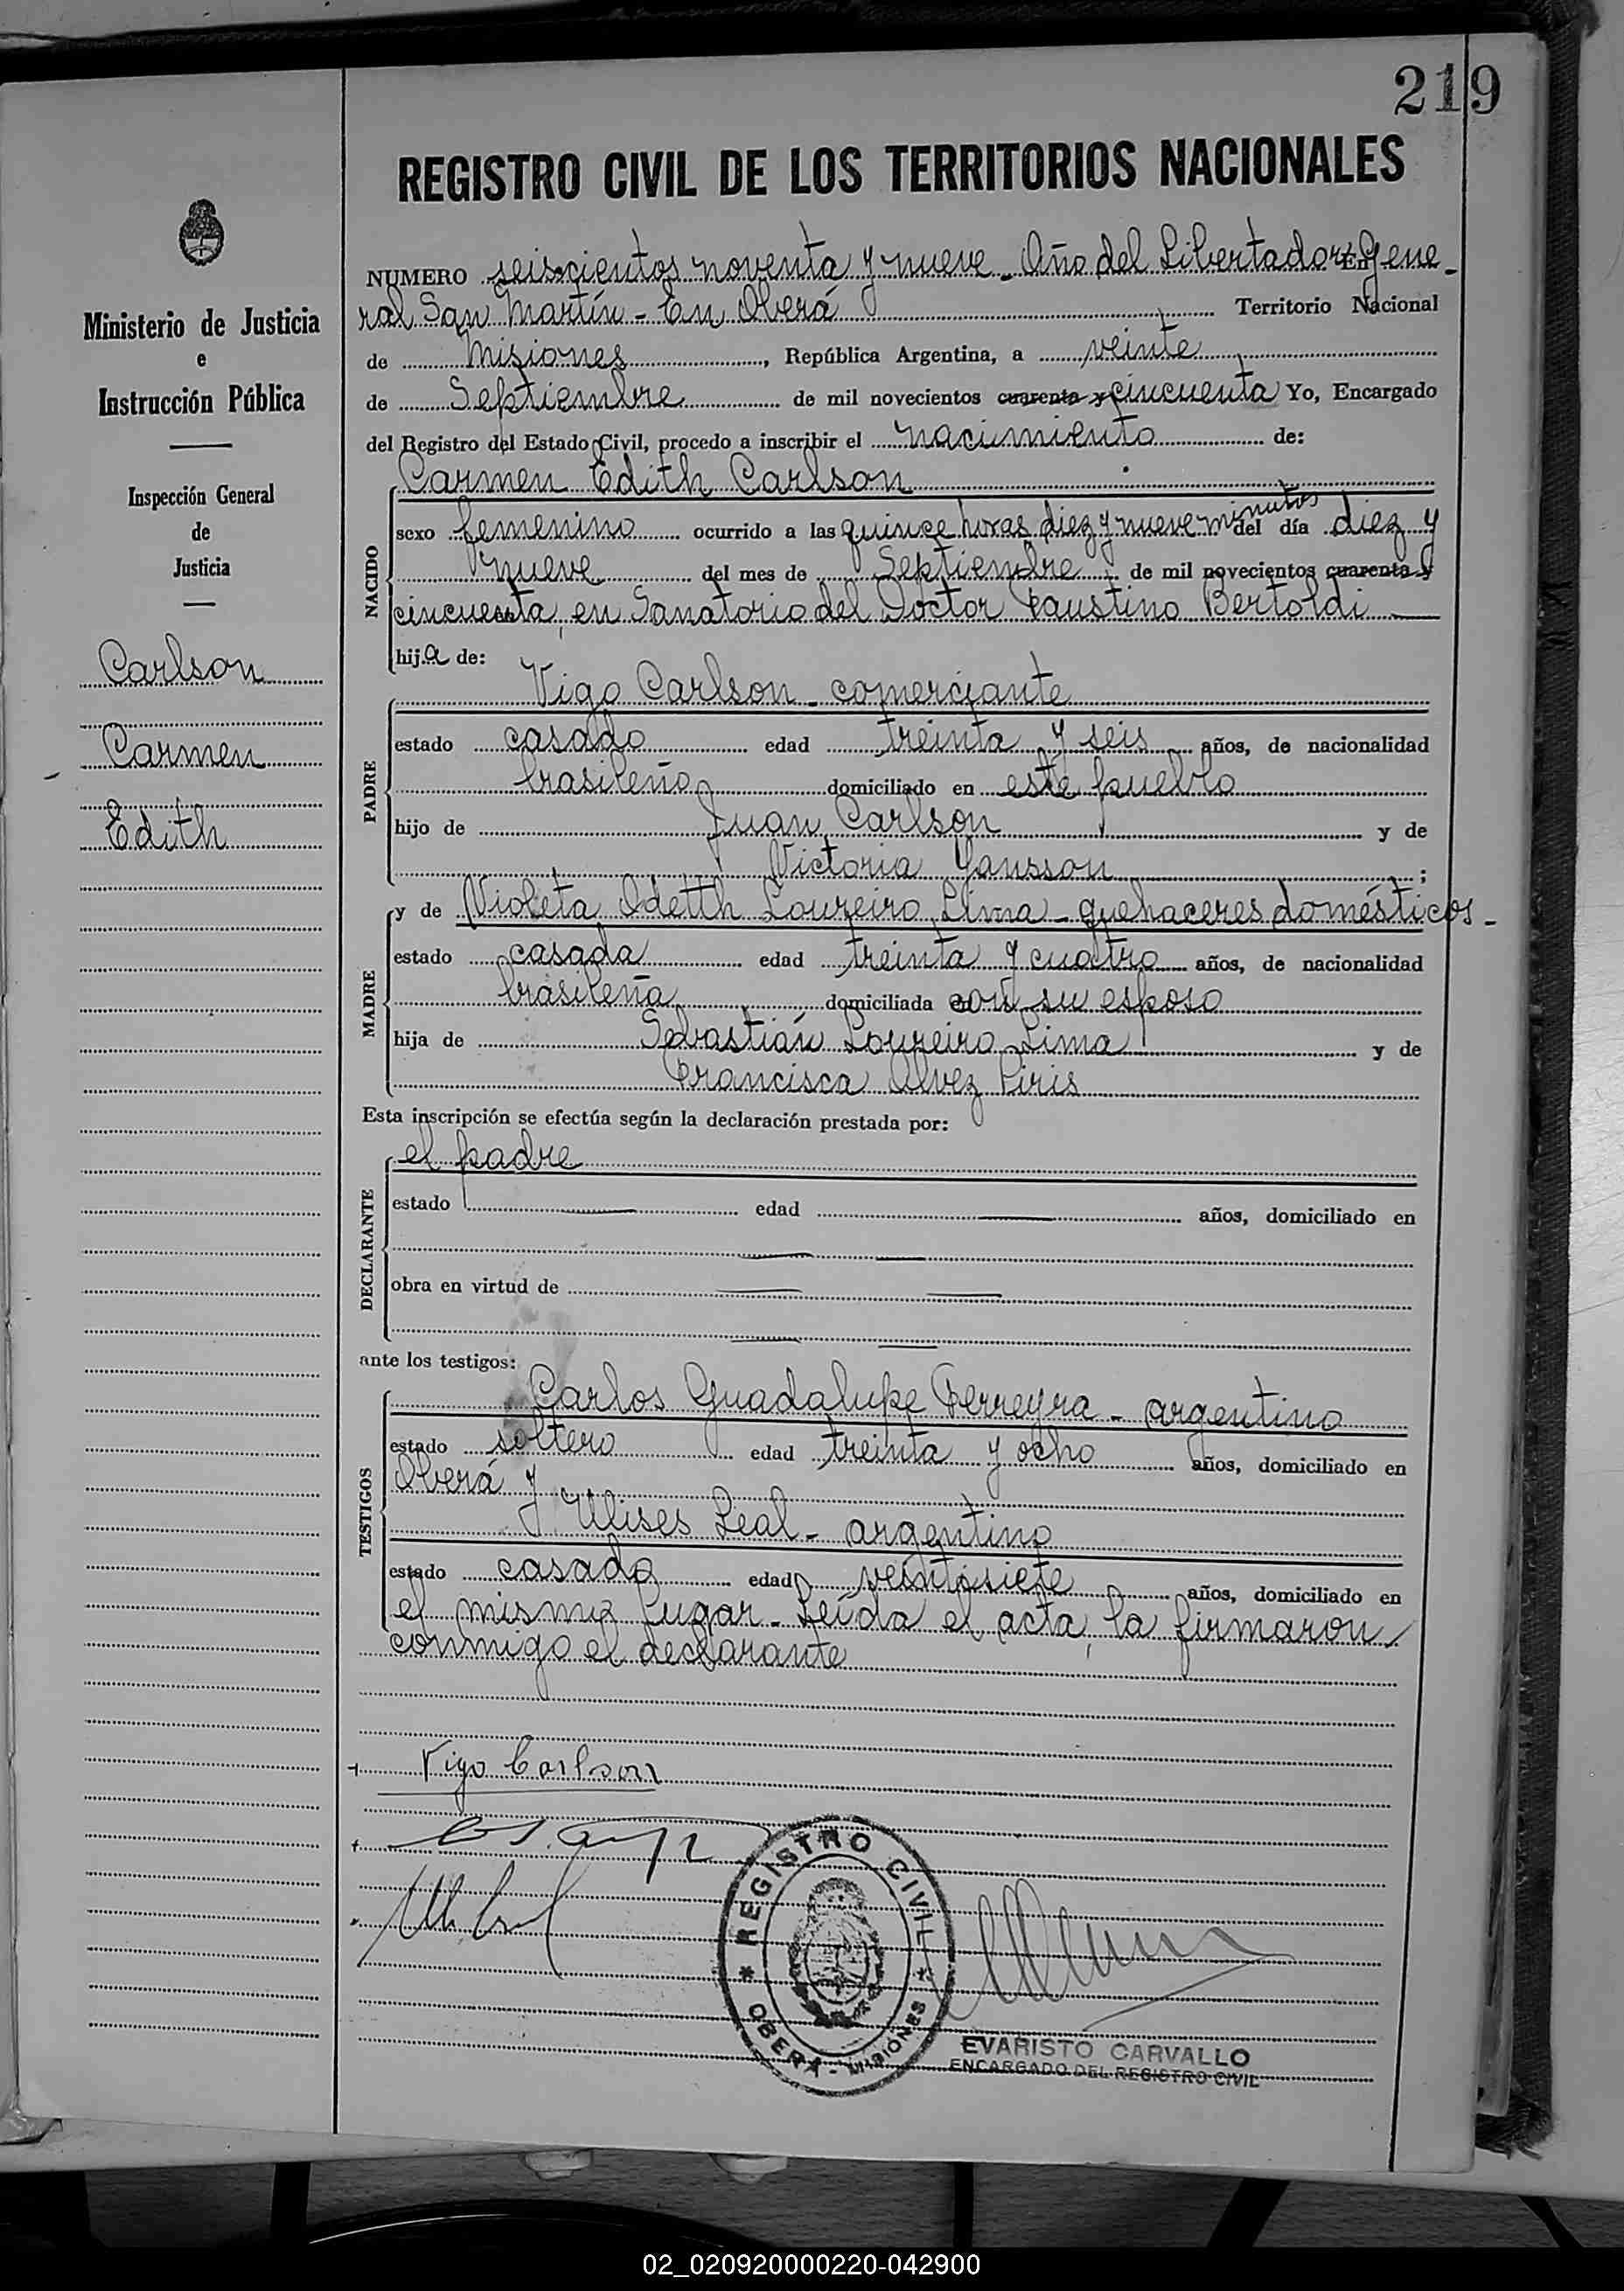 219
REGISTRO CIVIL DE LOS TERRITORIOS NACIONALES
Ministerio de Justicia
e
Instrucción Pública
Inspección General
de
Justicia
Carlson
Carmen
Edith
NUMERO seiscientos noventa y nueve - Año del Libertador En Gene-
ral San Martín - En Oberá Territorio Nacional
de Misiones, República Argentina, a veinte
de Septiembre de mil novecientos cuarenta y cincuenta Yo, Encargado
del Registro del Estado Civil, procedo a inscribir el nacimiento de:
Carmen Edith Carlson
NACIDO
sexo femenino ocurrido a las quince horas diez y nueve minutos del día diez y
nueve del mes de Septiembre de mil novecientos cuarenta y
cincuenta, en Sanatorio del Doctor Faustino Bertoldi
hija de:
Vigo Carlson - comerciante
PADRE
estado casado edad treinta y seis años, de nacionalidad
brasileña domiciliado en este pueblo
hijo de Juan Carlson y de
Victoria Yansson;
MADRE
y de Violeta Odetth Loureiro Lima - quehaceres domésticos -
estado casada edad treinta y cuatro años, de nacionalidad
brasileña domiciliada con su esposo
hija de Sebastián Loureiro Lima y de
Francisca Alvez Piris
Esta inscripción se efectúa según la declaración prestada por:
el padre
DECLARANTE
estado edad años, domiciliado en
obra en virtud de
ante los testigos:
Carlos Guadalupe Ferreyra - argentino
TESTIGOS
estado soltero edad treinta y ocho años, domiciliado en
Oberá y
Ulises Leal - argentino
estado casado edad veintisiete años, domiciliado en
el mismo lugar - Leída el acta, la firmaron
conmigo el declarante
Vigo Carlson
REGISTRO CIVIL
* OBERÁ - MISIONES *
EVARISTO CARVALLO
ENCARGADO DEL REGISTRO CIVIL
02_020920000220-042900